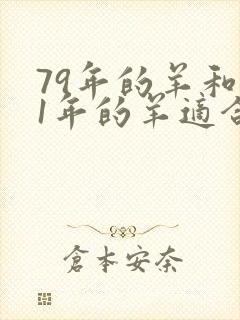 79年的羊和
1年的羊適合
倉本安奈